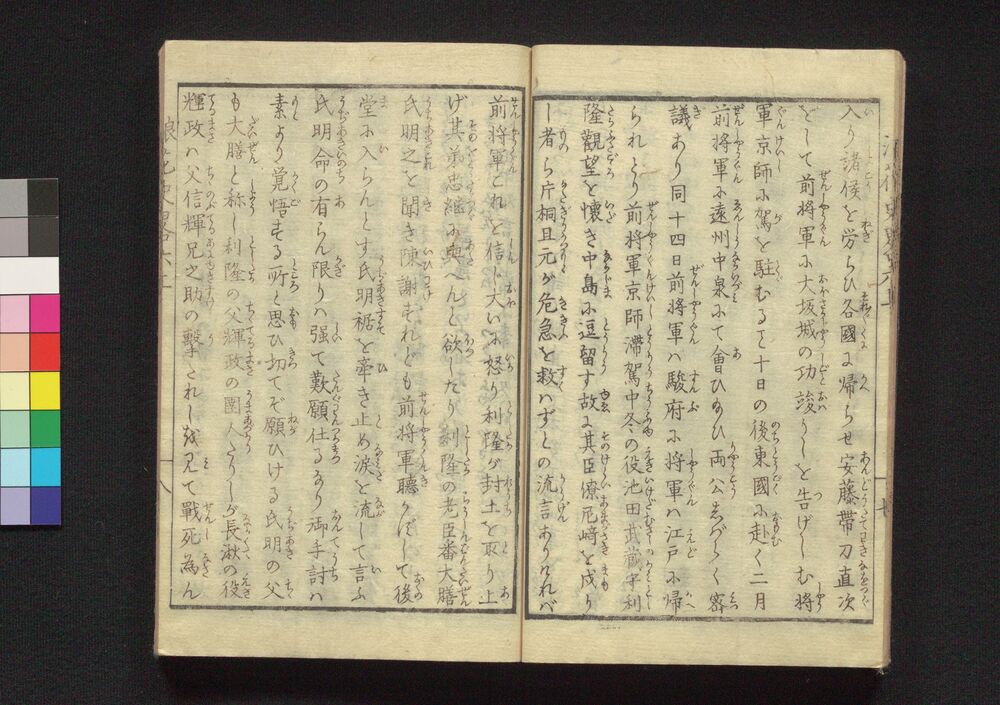 入り諸侯を労らひ各國に帰らせ安藤帯刀直次
をして前将軍に大坂城の功竣りしを告げしむ将
軍京師に駕を駐むること十日の後東國に赴く二月
前将軍に遠州中泉にて會ひ給ひ両公しばらく密
議あり同十四日前将軍は駿府に将軍は江戸に帰
られたり前将軍京師滞駕中冬の役池田武蔵守利
隆觀望を懐き中島に逗留す故に其臣僚尼崎を戍り
し者ら片桐且元が危急を救はずとの流言ありければ
前将軍これを信し大いに怒り利隆が封土を取り上
げ其弟忠継に與へんと欲したり利隆の老臣番大膳
氏明之を聞き陳謝すれども前将軍聽かずして後
堂に入らんとす氏明裾を牽き止め涙を流して言ふ
氏明命の有らん限りは强て歎願仕るなり御手討は
素より覚悟する所と思ひ切てぞ願ひける氏明の父
も大膳と称し利隆の父輝政の圉人たりしが長湫の役
輝政は父信輝兄之助の撃れしを見て戰死為ん